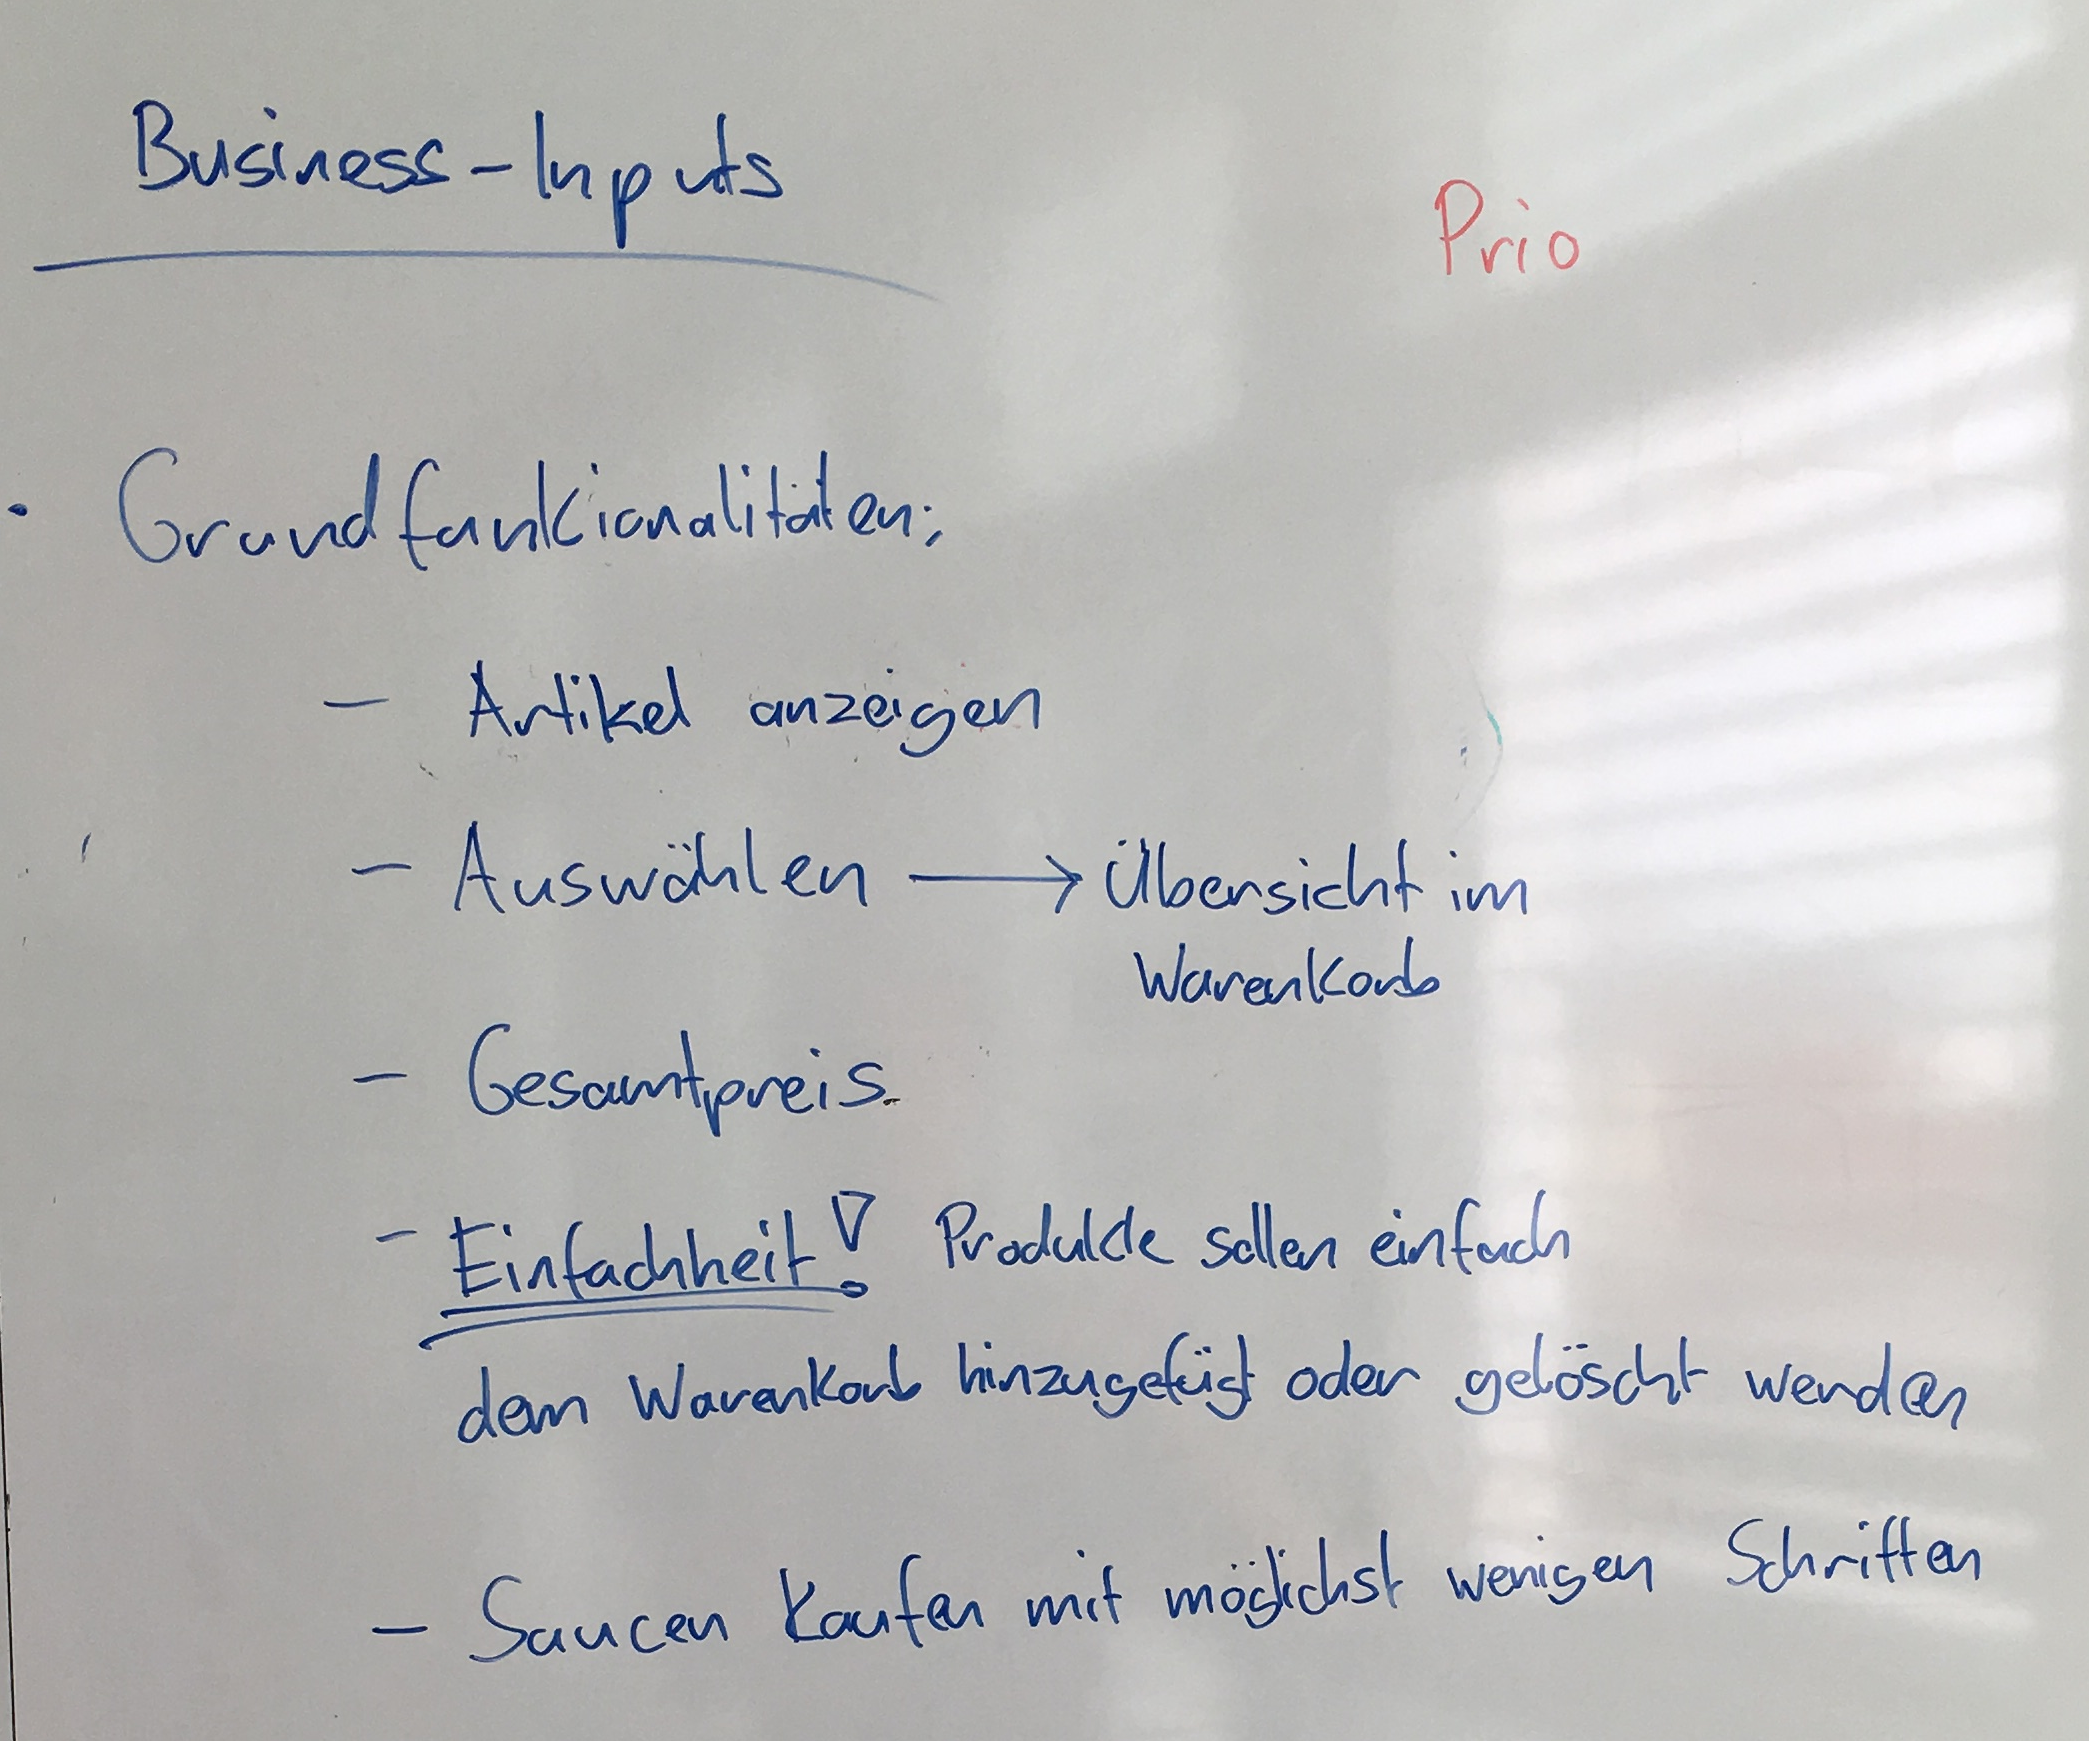 Business-Inputs
Prio
· Grundfunkionalitäten:
- Artikel anzeigen
- Auswählen → Übersicht im
Warenkorb
- Gesamtpreis.
- Einfachheit! Produkte sollen einfach
dem Warenkorb hinzugefügt oder gelöscht werden
- Saucen kaufen mit möglichst wenigen Schritten